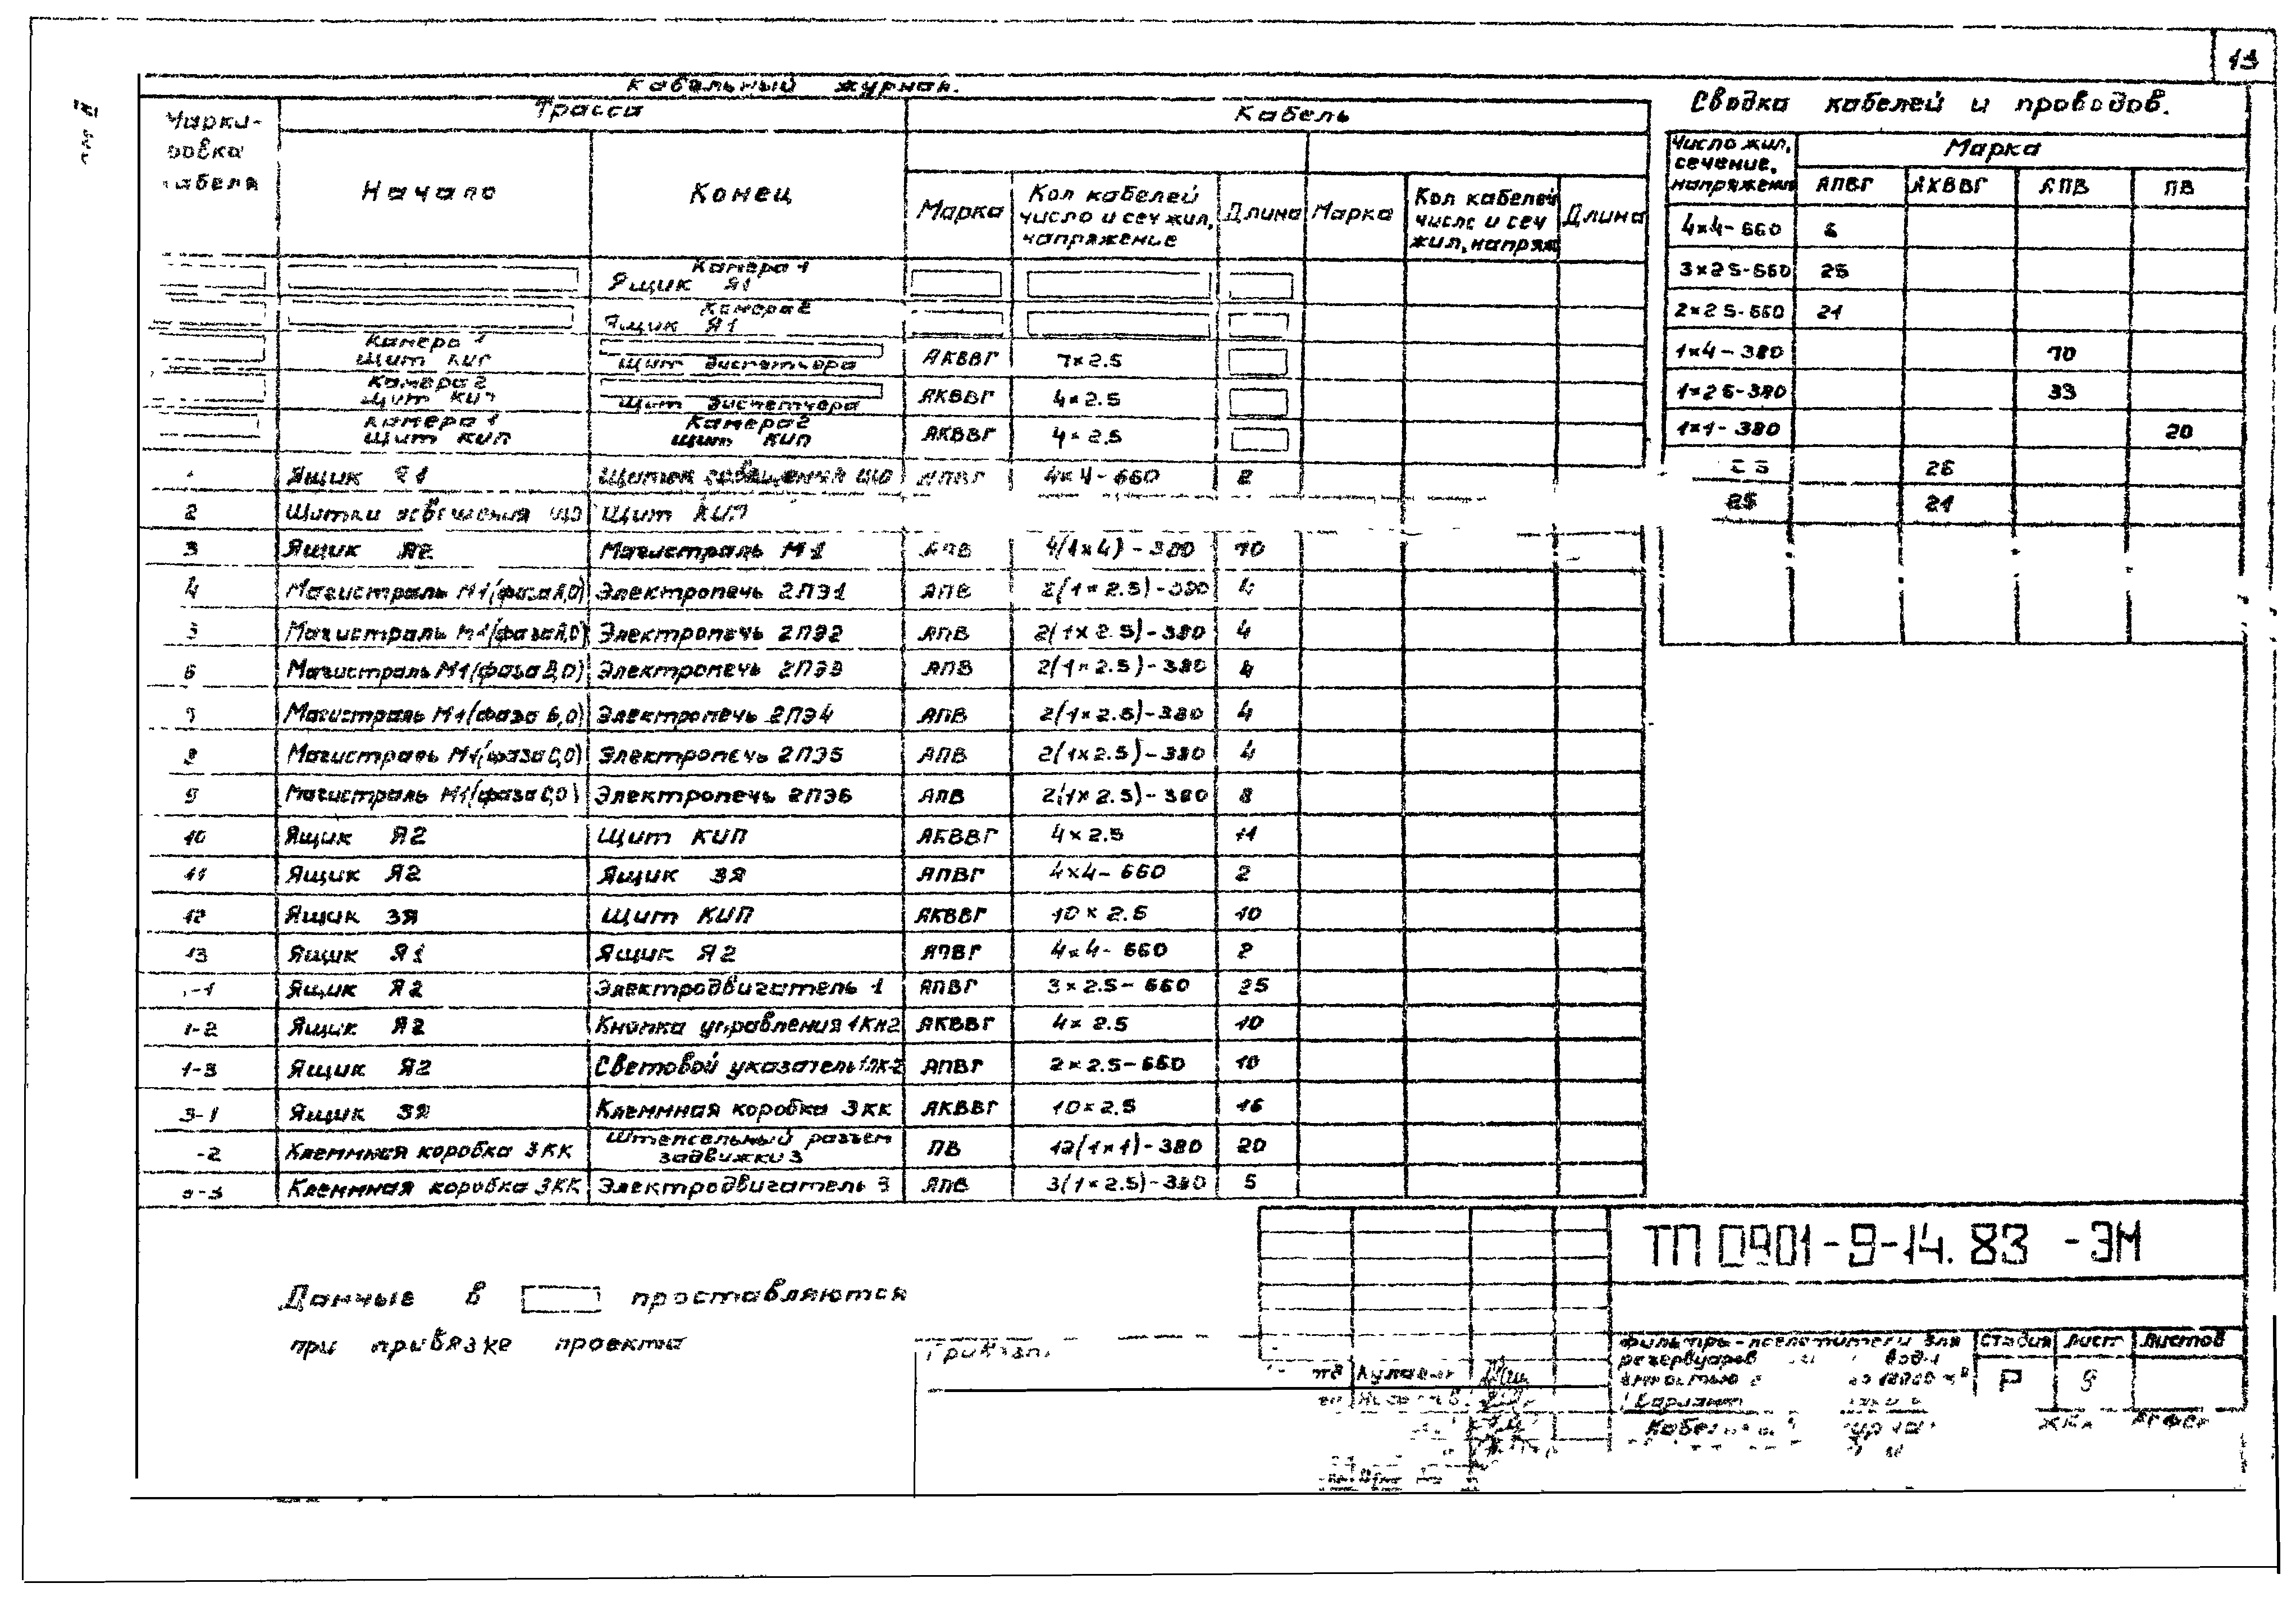 13
Кабельный журнал.
Сводка кабелей и проводов.
Трасса
Кабель
Начало
Конец
Марка
Кол кабелей число и сеч жил, напряжение
Длина
Марка
Кол кабелей число и сеч жил, напряж
Длина
Число жил, сечение, напряжение
Марка
АПВГ АКВВГ АПВ ПВ
4×4-660
3×25-660 25
2×25-660 21
1×4-380 10
1×25-380 33
1×1-380 20
26
25 21
Камера 1
Ящик Я1
Камера 2
Ящик Я1
Камера 1 Щит КИП Щит диспетчера АКВВГ 7×2.5
Камера 2 Щит КИП Щит диспетчера АКВВГ 4×2.5
Камера 1 Щит КИП Камера 2 Щит КИП АКВВГ 4×2.5
Ящик Я1 Щиток освещения ЩО АПВГ 4×4-660 2
2 Щиток освещения ЩО Щит КИП
3 Ящик Я2 Магистраль М1 АПВ 4(1×4)-380 10
4 Магистраль М1(фаза А,0) Электропечь 2ПЭ1 АПВ 2(1×2.5)-380 4
5 Магистраль М1(фаза А,0) Электропечь 2ПЭ2 АПВ 2(1×2.5)-380 4
6 Магистраль М1(фаза В,0) Электропечь 2ПЭ3 АПВ 2(1×2.5)-380 4
7 Магистраль М1(фаза В,0) Электропечь 2ПЭ4 АПВ 2(1×2.5)-380 4
8 Магистраль М1(фаза С,0) Электропечь 2ПЭ5 АПВ 2(1×2.5)-380 4
9 Магистраль М1(фаза С,0) Электропечь 2ПЭ6 АПВ 2(1×2.5)-380 8
10 Ящик Я2 Щит КИП АКВВГ 4×2.5 11
11 Ящик Я2 Ящик 3Я АПВГ 4×4-660 2
12 Ящик 3Я Щит КИП АКВВГ 10×2.5 10
13 Ящик Я1 Ящик Я2 АПВГ 4×4-660 2
-1 Ящик Я2 Электродвигатель 1 АПВГ 3×2.5-660 25
1-2 Ящик Я2 Кнопка управления 1Кн2 АКВВГ 4×2.5 10
1-3 Ящик Я2 Световой указатель АПВГ 2×2.5-660 10
3-1 Ящик 3Я Клеммная коробка 3КК АКВВГ 10×2.5 16
-2 Клеммная коробка 3КК Штепсельный разъем задвижки 3 ПВ 12(1×1)-380 20
3-3 Клеммная коробка 3КК Электродвигатель 3 АПВ 3(1×2.5)-380 5
Данные в проставляются
при привязке проекта
ТП 0901-9-14.83 -ЭМ
Фильтры-поглотители для
резервуаров воды
Стадия Лист Листов
Р 9